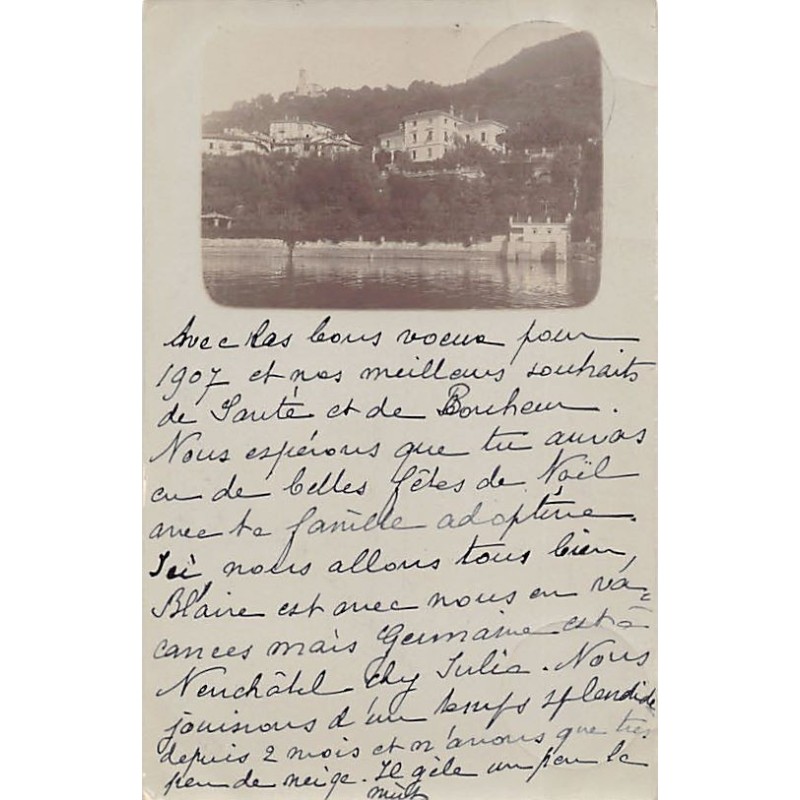 Avec nos bons voeux pour
1907 et nos meilleurs souhaits
de Santé et de Bonheur.
Nous espérons que tu auras
eu de belles fêtes de Noël
avec ta famille adoptive.
Ici nous allons tous bien,
Blaire est avec nous en va=
cances mais Germaine est à
Neuchâtel chez Julie. Nous
jouissons d'un temps splendide
depuis 2 mois et n'avons que très
peu de neige. Il gèle un peu la
nuit